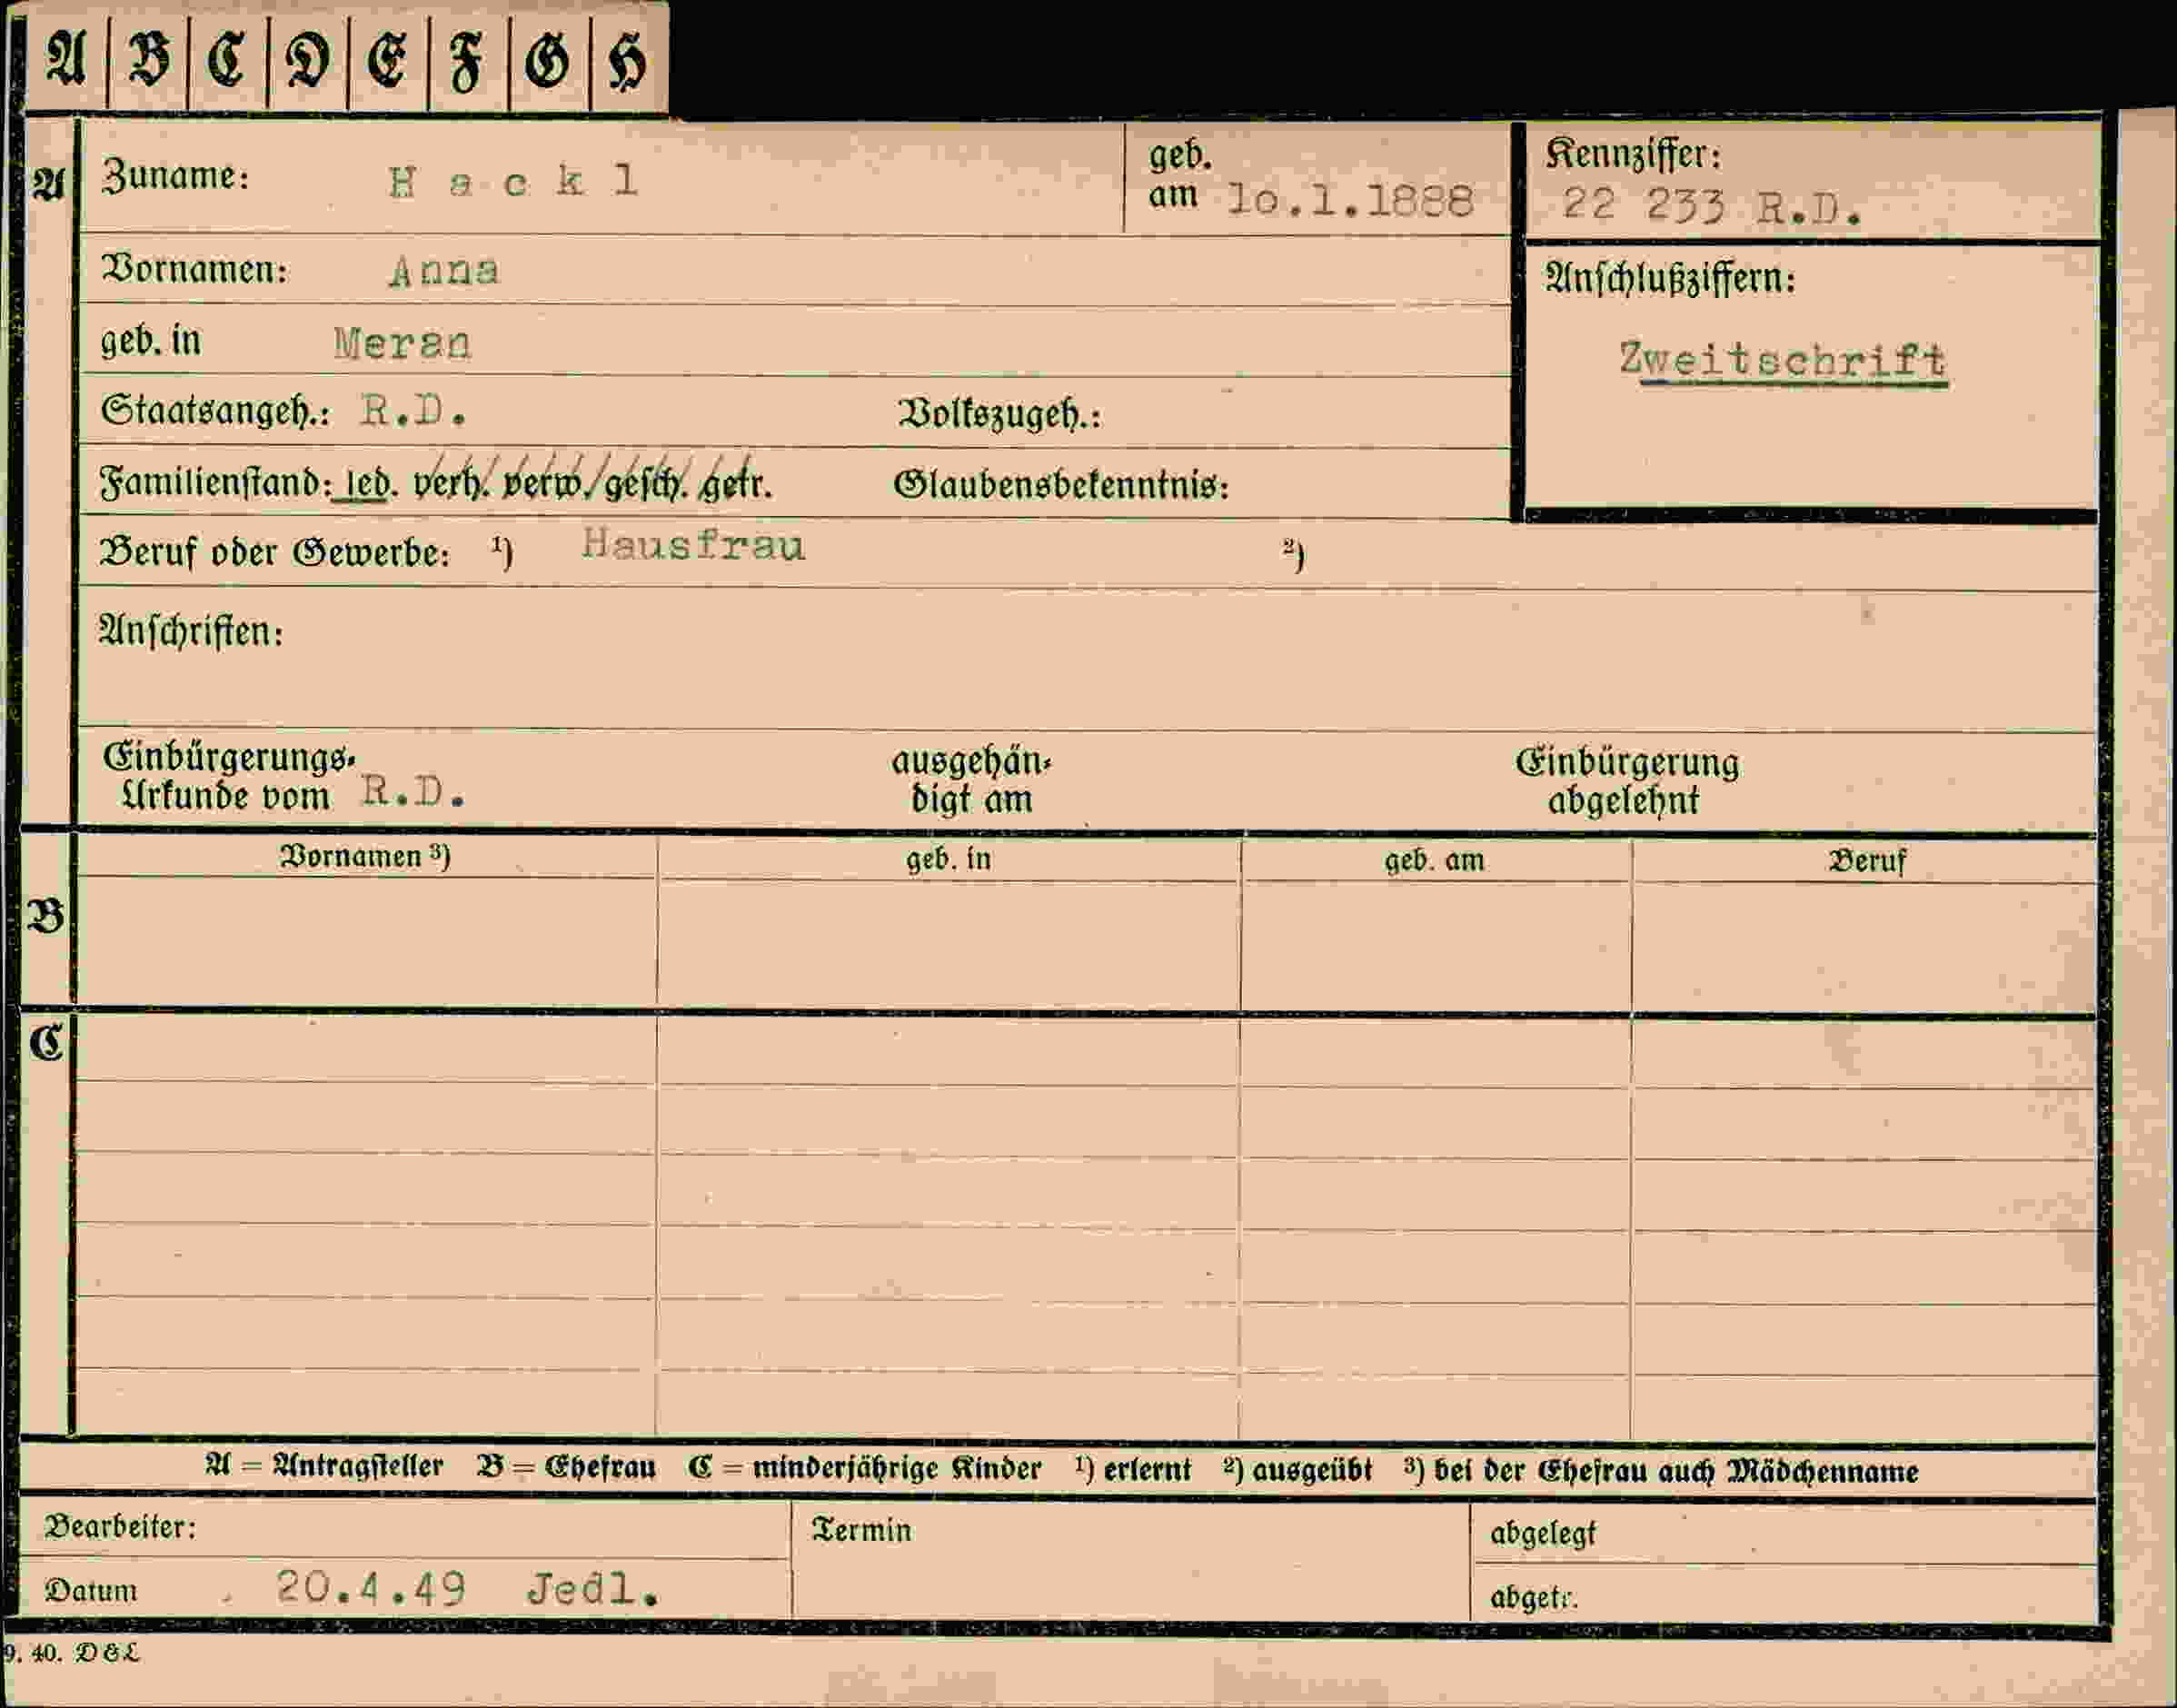 A B C D E F G H
A Zuname: Hackl geb. am 10.1.1888 Kennziffer: 22 233 R.D.
Vornamen: Anna Anschlußziffern:
geb. in Meran Zweitschrift
Staatsangeh.: R.D. Volkszugeh.:
Familienstand: led. verh. verw. gesch. getr. Glaubensbekenntnis:
Beruf oder Gewerbe: ¹) Hausfrau ²)
Anschriften:
Einbürgerungs- ausgehän- Einbürgerung
Urkunde vom R.D. digt am abgelehnt
Vornamen ³) geb. in geb. am Beruf
B
C
A = Antragsteller B = Ehefrau C = minderjährige Kinder ¹) erlernt ²) ausgeübt ³) bei der Ehefrau auch Mädchenname
Bearbeiter: Termin abgelegt
Datum 20.4.49 Jedl. abgetr.
9. 40. D&L